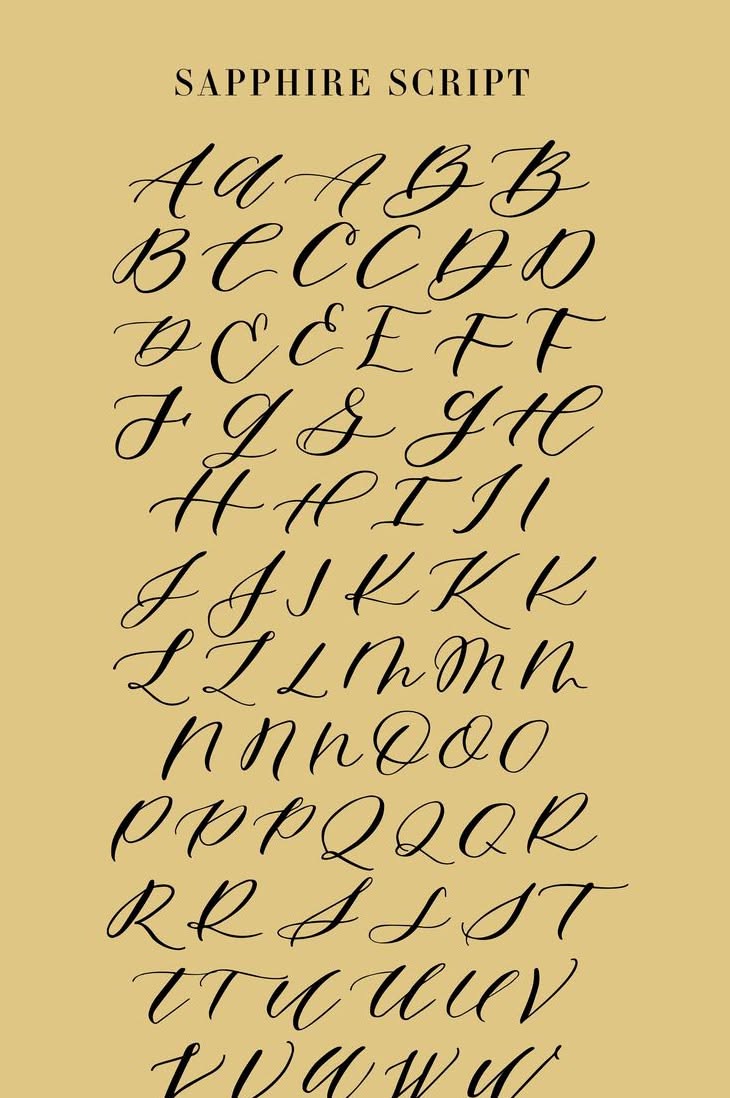 SAPPHIRE SCRIPT
A A A B B
B C C C D D
D E E E F F
F G G G H
H H I I I
J J J K K K
L L L M M M
N N N O O O
P P P Q Q Q R
R R S S S T
T T U U U V
V V W W W